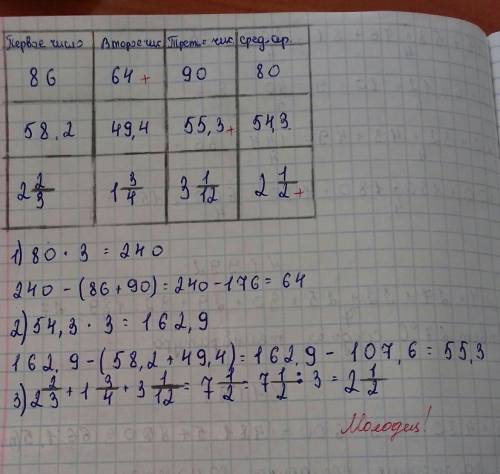 Первое число Второе чис Треть= чис сред. ар.
86 64 + 90 80
58.2 49,4 55,3 + 54,3
2 2/3 1 3/4 3 1/12 2 1/2 +
1) 80 · 3 = 240
240 - (86 + 90) = 240 - 176 = 64
2) 54,3 · 3 = 162,9
162,9 - (58,2 + 49,4) = 162,9 - 107,6 = 55,3
3) 2 2/3 + 1 3/4 + 3 1/12 = 7 1/2 = 7 1/2 : 3 = 2 1/2
Молодец!